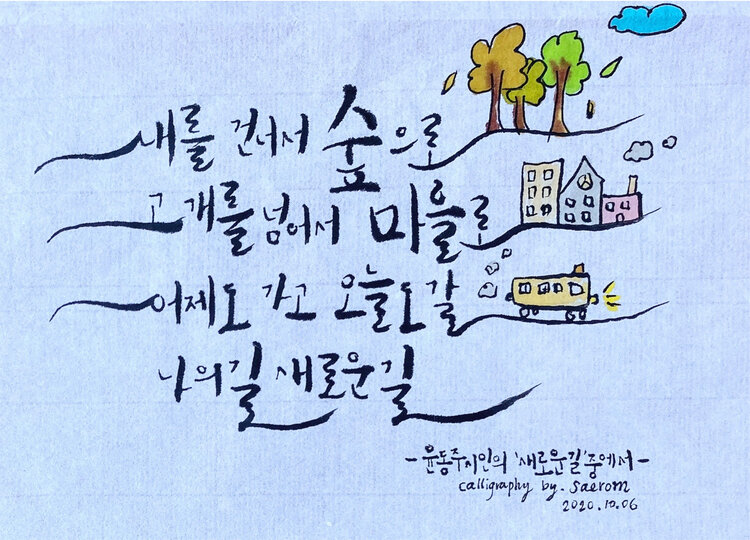 내를 건너서 숲으로
고개를 넘어서 마을로
어제도 가고 오늘도 갈
나의길 새로운길
- 윤동주시인의 '새로운길' 중에서 -
calligraphy by. saerom
2020.10.06